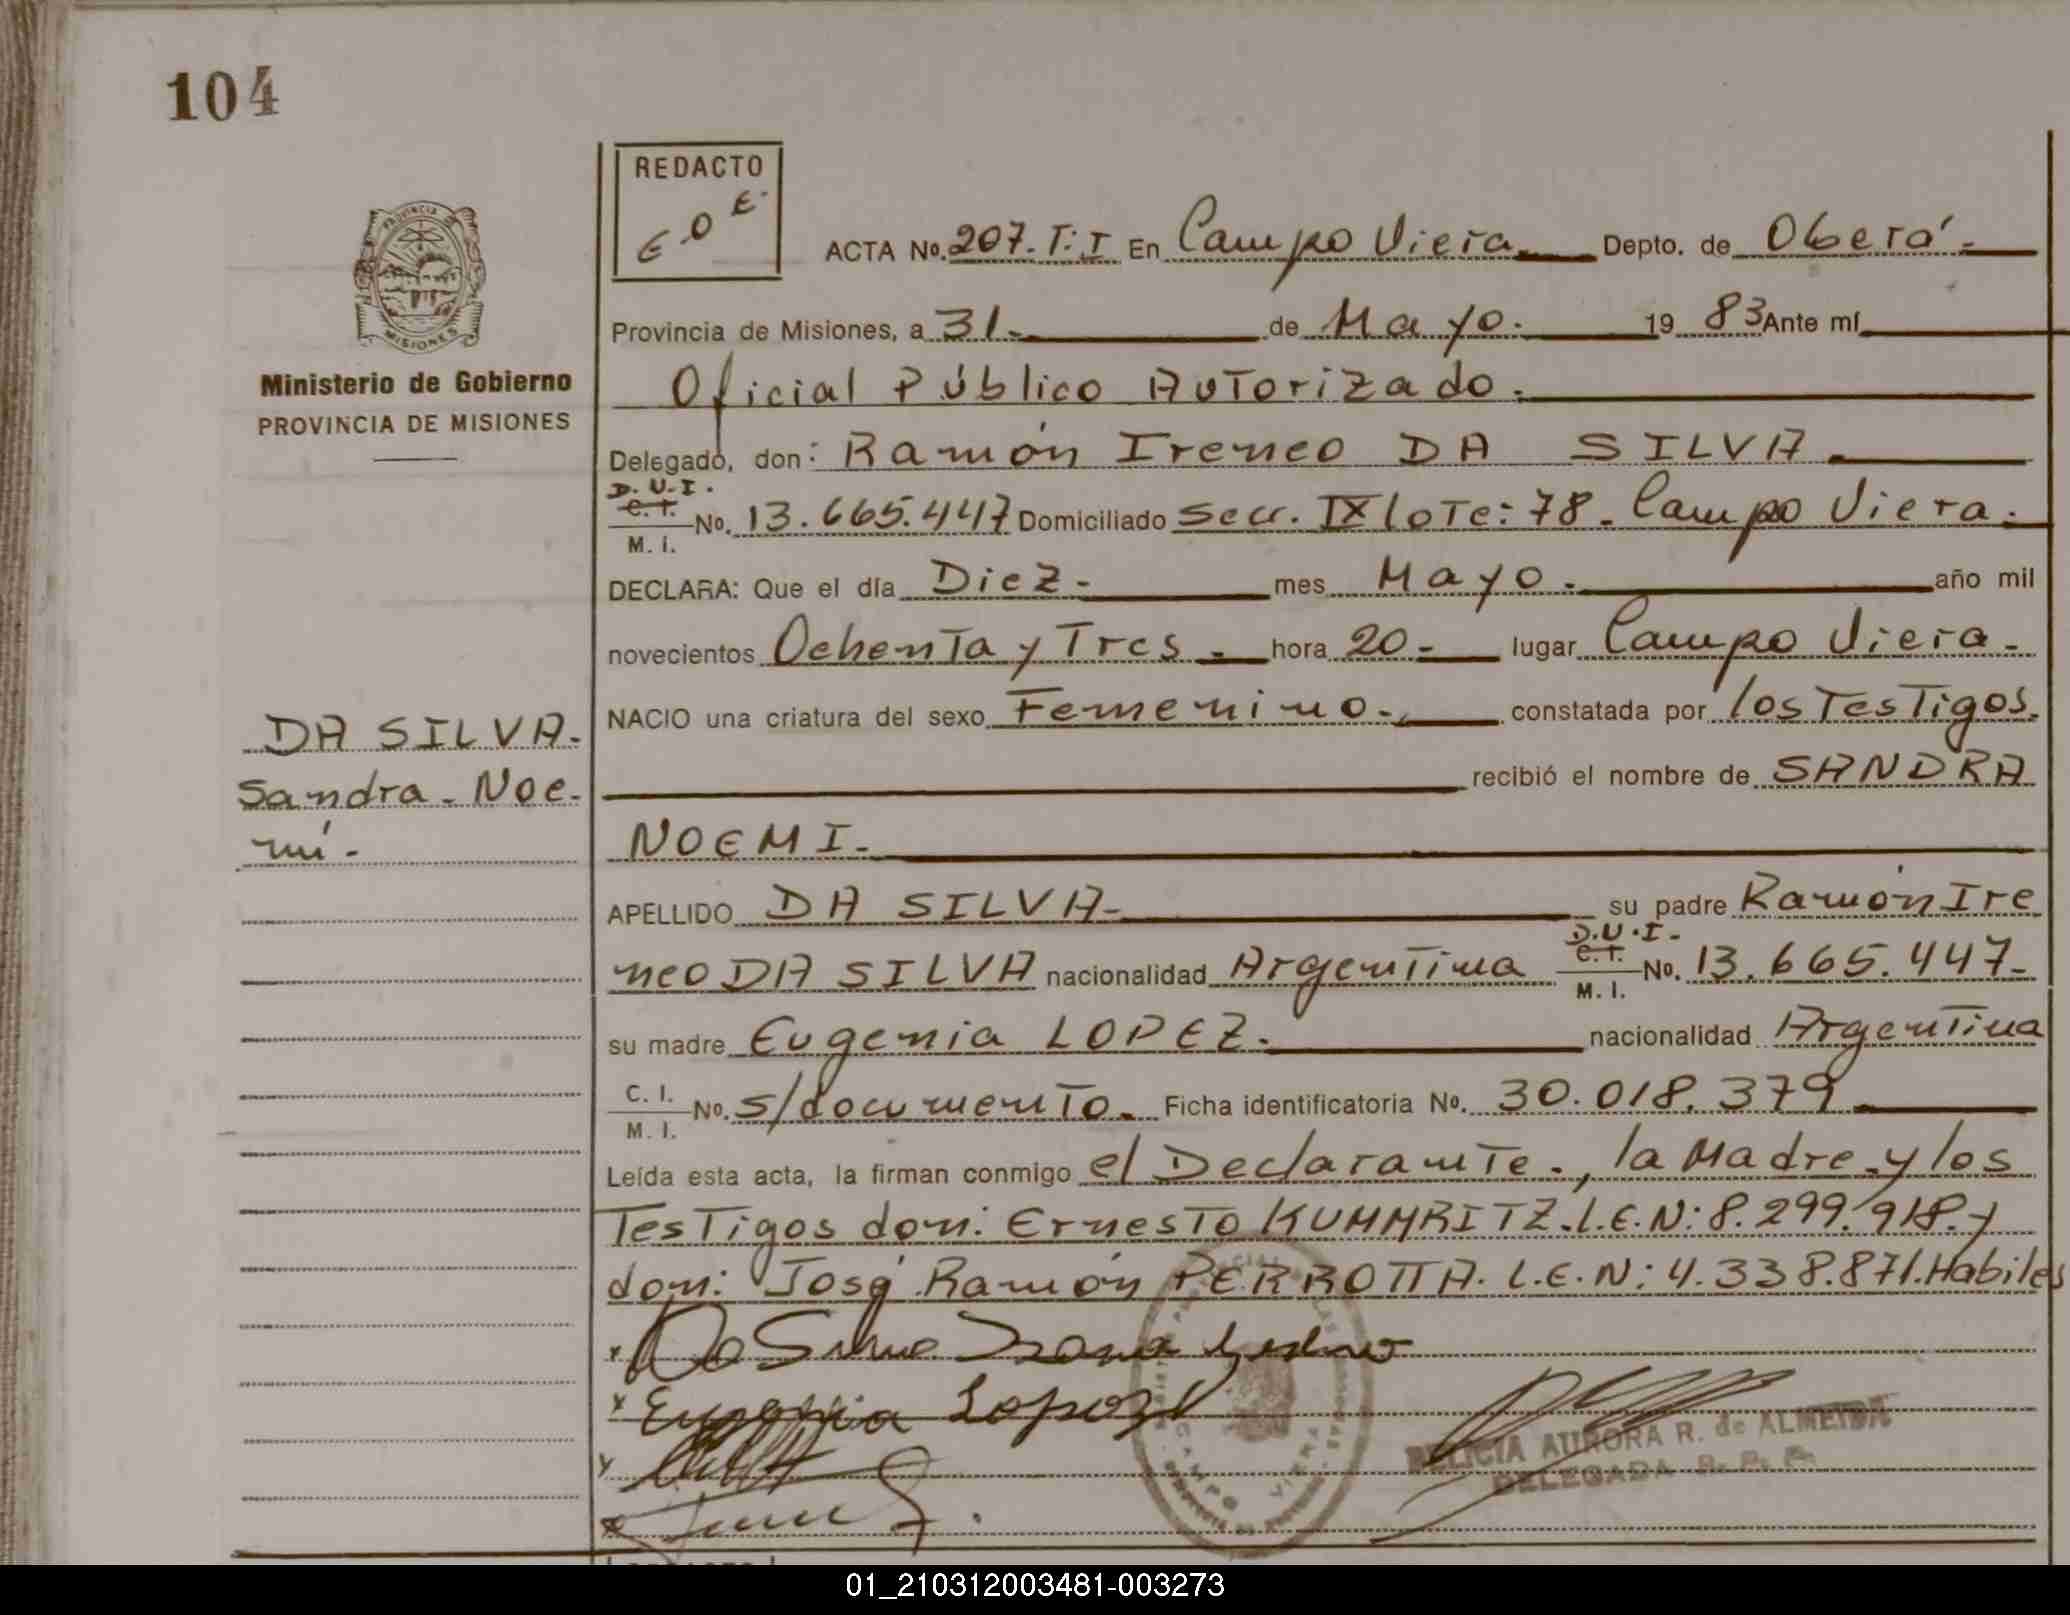 104
REDACTO
E.O.E.
ACTA No. 207. T: I En Campo Viera Depto. de Oberá.
Provincia de Misiones, a 31. de Mayo. 19 83 Ante mí
Oficial Público Autorizado.
Delegado, don: Ramón Ireneo DA SILVA.
D.U.I.
C. I.
M. I. No. 13.665.447 Domiciliado Secc. IX lote: 78. Campo Viera.
DECLARA: Que el día Diez. mes Mayo. año mil
novecientos Ochenta y Tres. hora 20. lugar Campo Viera.
NACIO una criatura del sexo Femenino. constatada por los Testigos.
recibió el nombre de SANDRA
NOEMI.
APELLIDO DA SILVA. su padre Ramón Ire
neo DA SILVA nacionalidad Argentina D.U.I. C. I. M. I. No. 13.665.447.
su madre Eugenia LOPEZ. nacionalidad Argentina
C. I.
M. I. No. s/documento. Ficha identificatoria No. 30.018.379
Leída esta acta, la firman conmigo el Declarante., la Madre. y los
Testigos don: Ernesto KUMMRITZ. L.E.N: 8.299.918. y
don: José Ramón PERROTTA. L.E.N: 4.338.871. Habiles
Eugenia Lopez
CAMPO VIERA
DELICIA AURORA R. de ALMEIDA
DELEGADA R. P. P.
PROVINCIA DE
MISIONES
Ministerio de Gobierno
PROVINCIA DE MISIONES
DA SILVA.
Sandra. Noe-
mí.
01_210312003481-003273